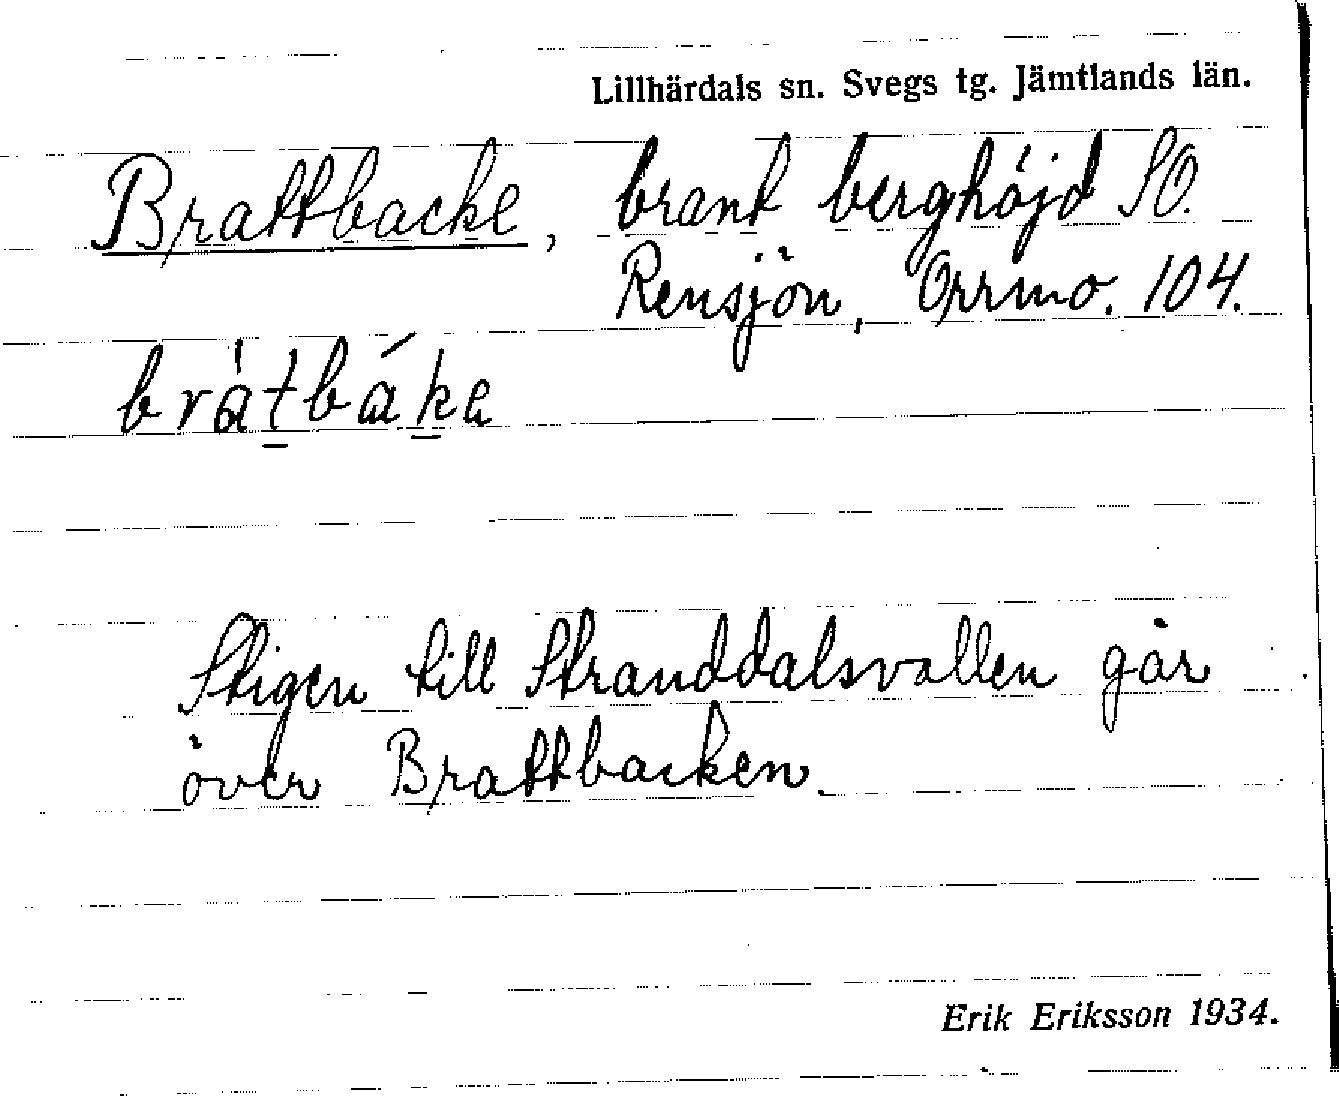 Lillhärdals sn. Svegs tg. Jämtlands län.
Brattbacke, brant berghöjd SO.
Rensjön, Orrmo. 104.
bràt̲bák̲a
Stigen till Stranddalsvallen går
över Brattbacken.
Erik Eriksson 1934.